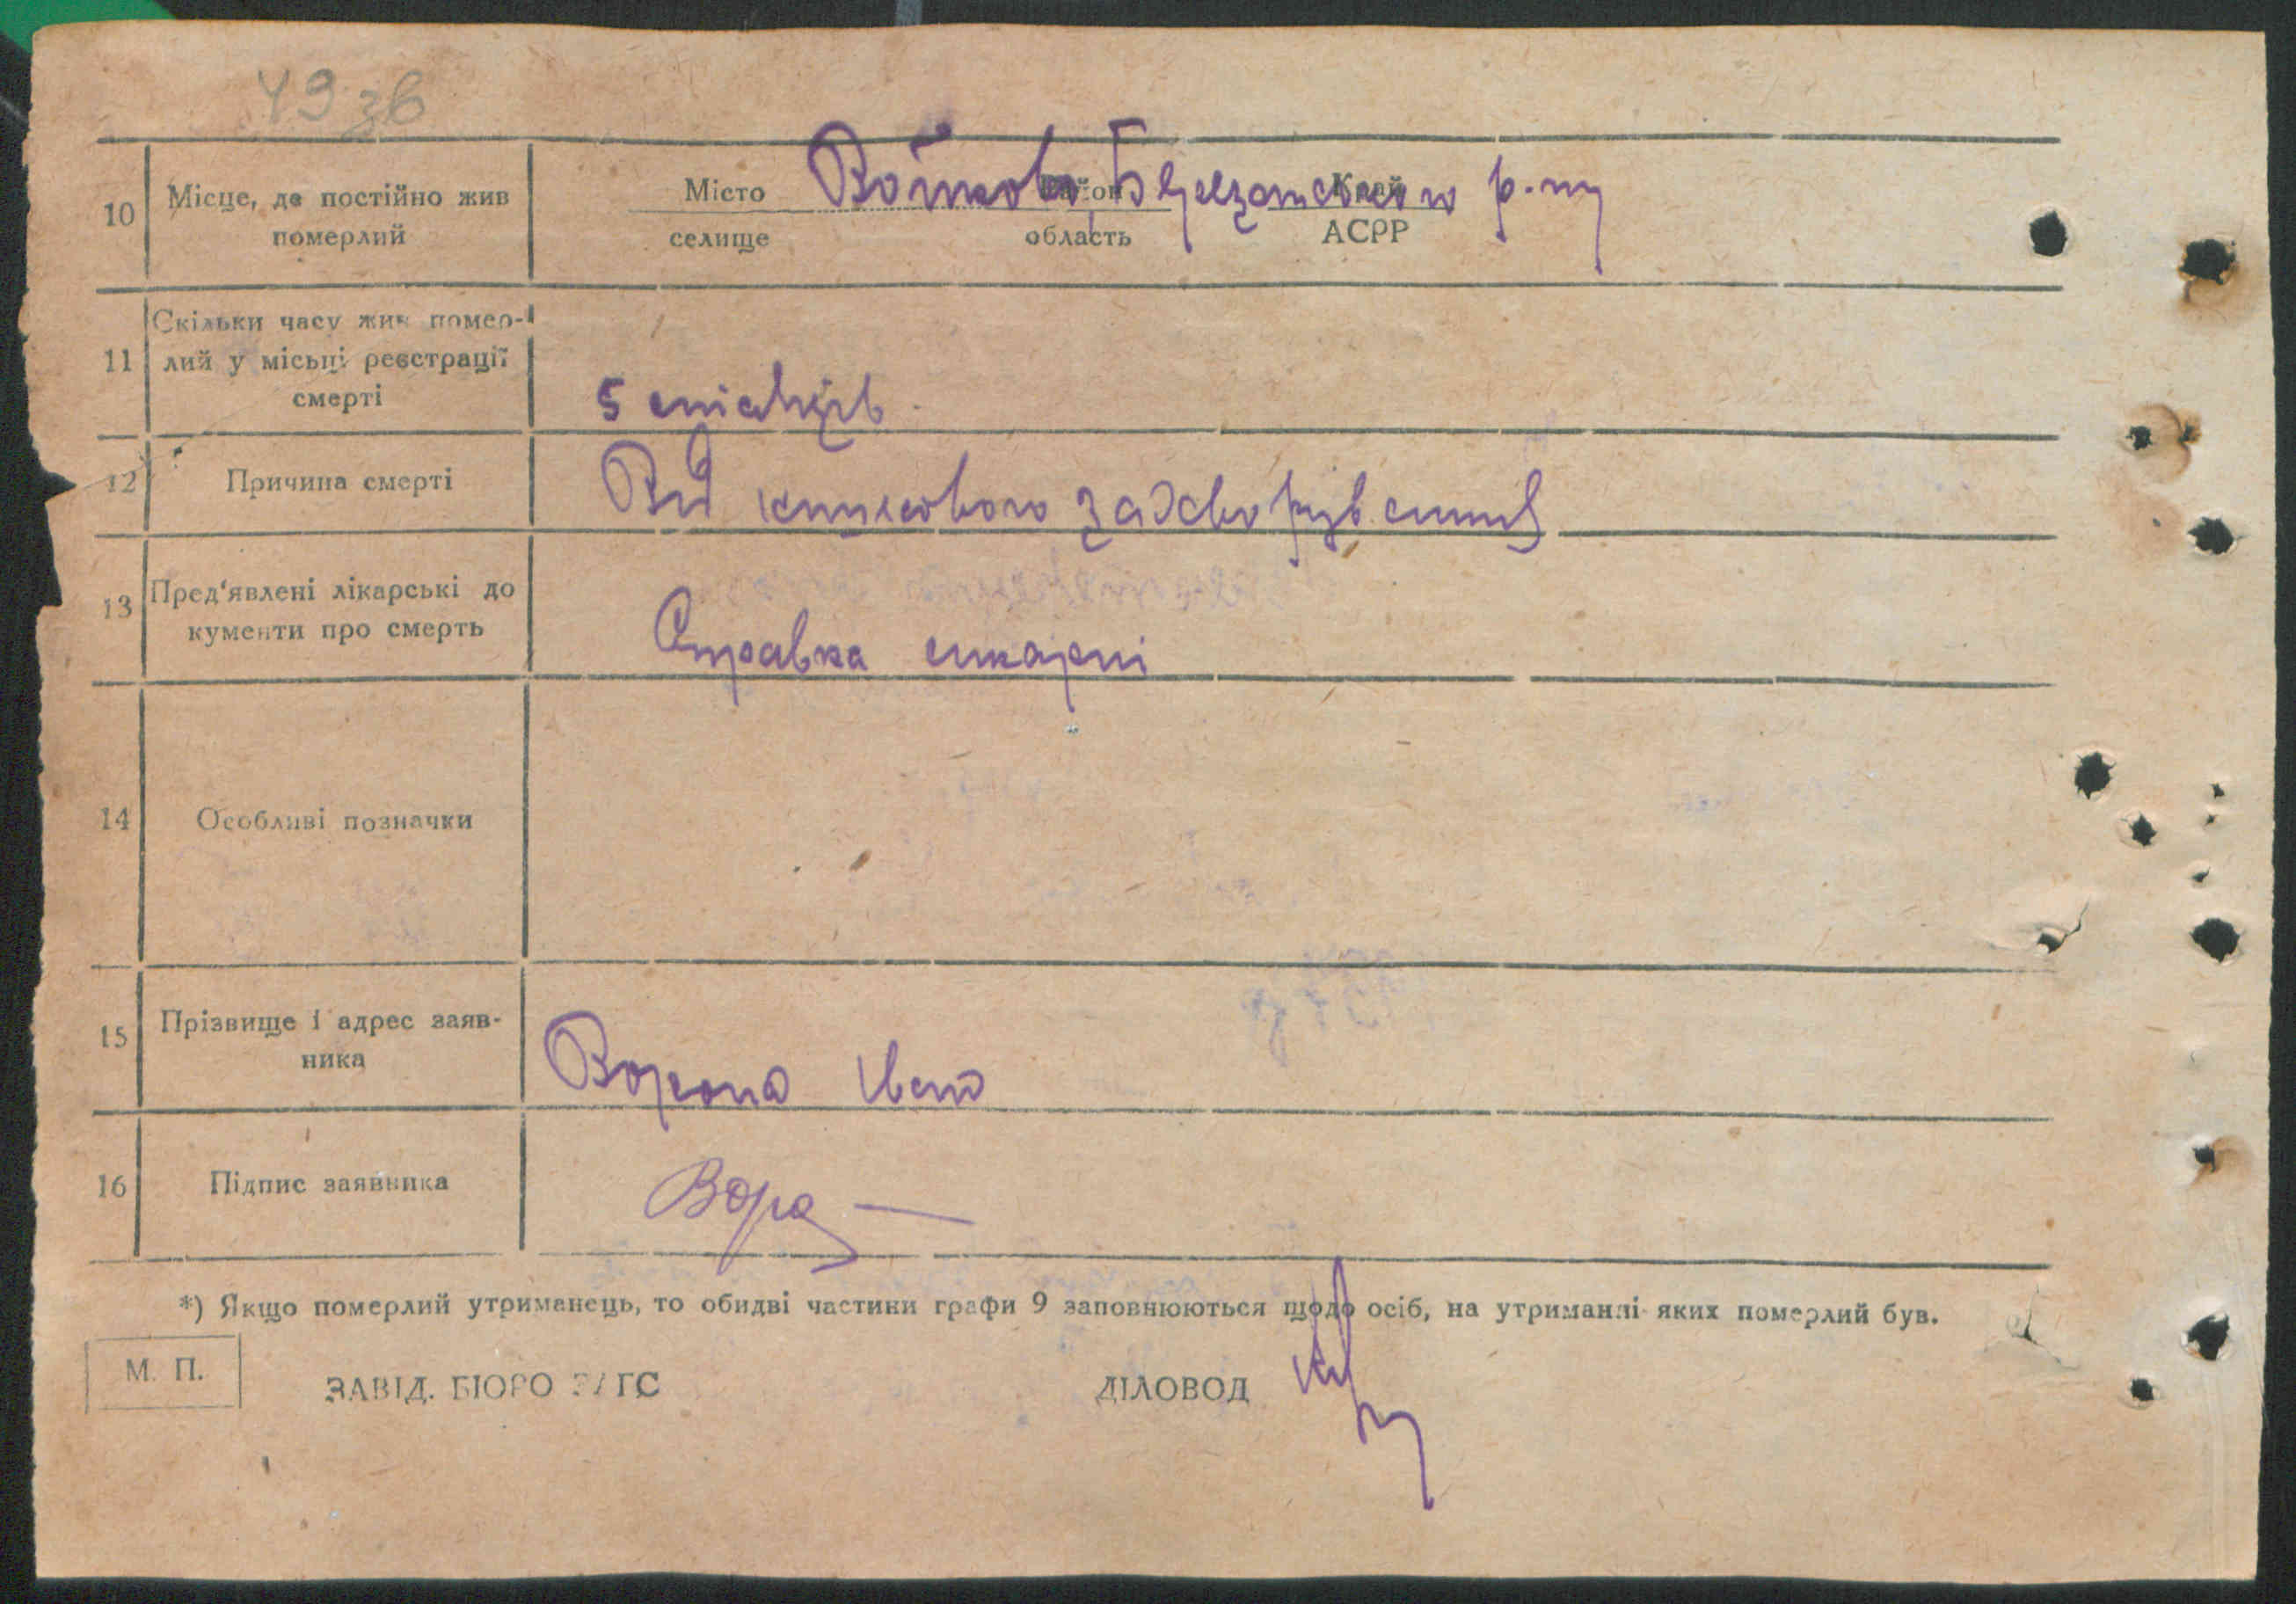 49 зв
10 Місце, де постійно жив померлий
Місто Войтово, Березанського р-ну
селище
район
область
Край
АСРР
11 Скільки часу жив помер-
лий у місьці реєстрації
смерті
5 місяців
12 Причина смерті
Від кишкового захворювання
13 Пред'явлені лікарські до
кументи про смерть
Справка лікарні
14 Особливі позначки
15 Прізвище і адрес заяв-
ника
Ворона Іван
16 Підпис заявника
*) Якщо померлий утриманець, то обидві частини графи 9 заповнюються щодо осіб, на утриманні яких померлий був.
М. П.
ЗАВІД. БЮРО ЗАГС
ДІЛОВОД